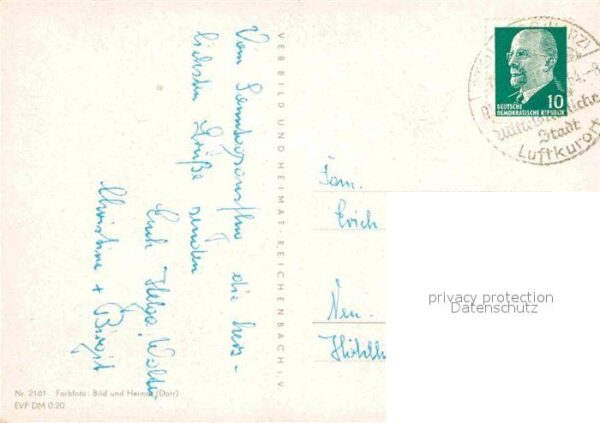 Vom Sonntagsausflug die herz-
lichsten Grüße senden
Euch Helga, Walter
Christine + Birgit
VEB BILD UND HEIMAT REICHENBACH I. V.
Nr. 2161 Farbfoto: Bild und Heimat (Darr)
EVP DM 0.20
10
DEUTSCHE
DEMOKRATISCHE REPUBLIK
Stadt
Luftkurort
Fam.
Erich
Neu
privacy protection
Datenschutz